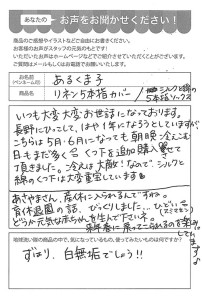 あなたの お声をお聞かせください！
商品のご感想やイラストなどご自由にお書きください。
お客様のお声がスタッフの元気のもとです！
いただいたお声はホームページなどでご紹介させていただくことがございます。
ご質問はメールもしくはお電話でお願いいたします。
お名前
(ペンネーム可)
あるくま子
商品名
リネン5本指カバー/シルクと綿の
5本指ソックス
いつも大変大変お世話になっております。
長野にひっこして、はや1年になろうとしていますが、
こちらは5月・6月になっても朝晩冷えこむ
日もまだ多く くつ下を追加購入させて
頂きました。冷えは大敵！なので、シルクと
綿のくつ下は大変重宝しています
あさやまさん、産休に入られるんですか。
育休退園の話、びっくりしました…ひどい
どうか元気な赤ちゃんを生んで下さいネ。
来年春に戻ってこられるのを楽しみに
しています♪
地球洗い隊の商品の中で、気になっているもの、使ってみたいものは何ですか？
ずばり、白無垢でしょう!!